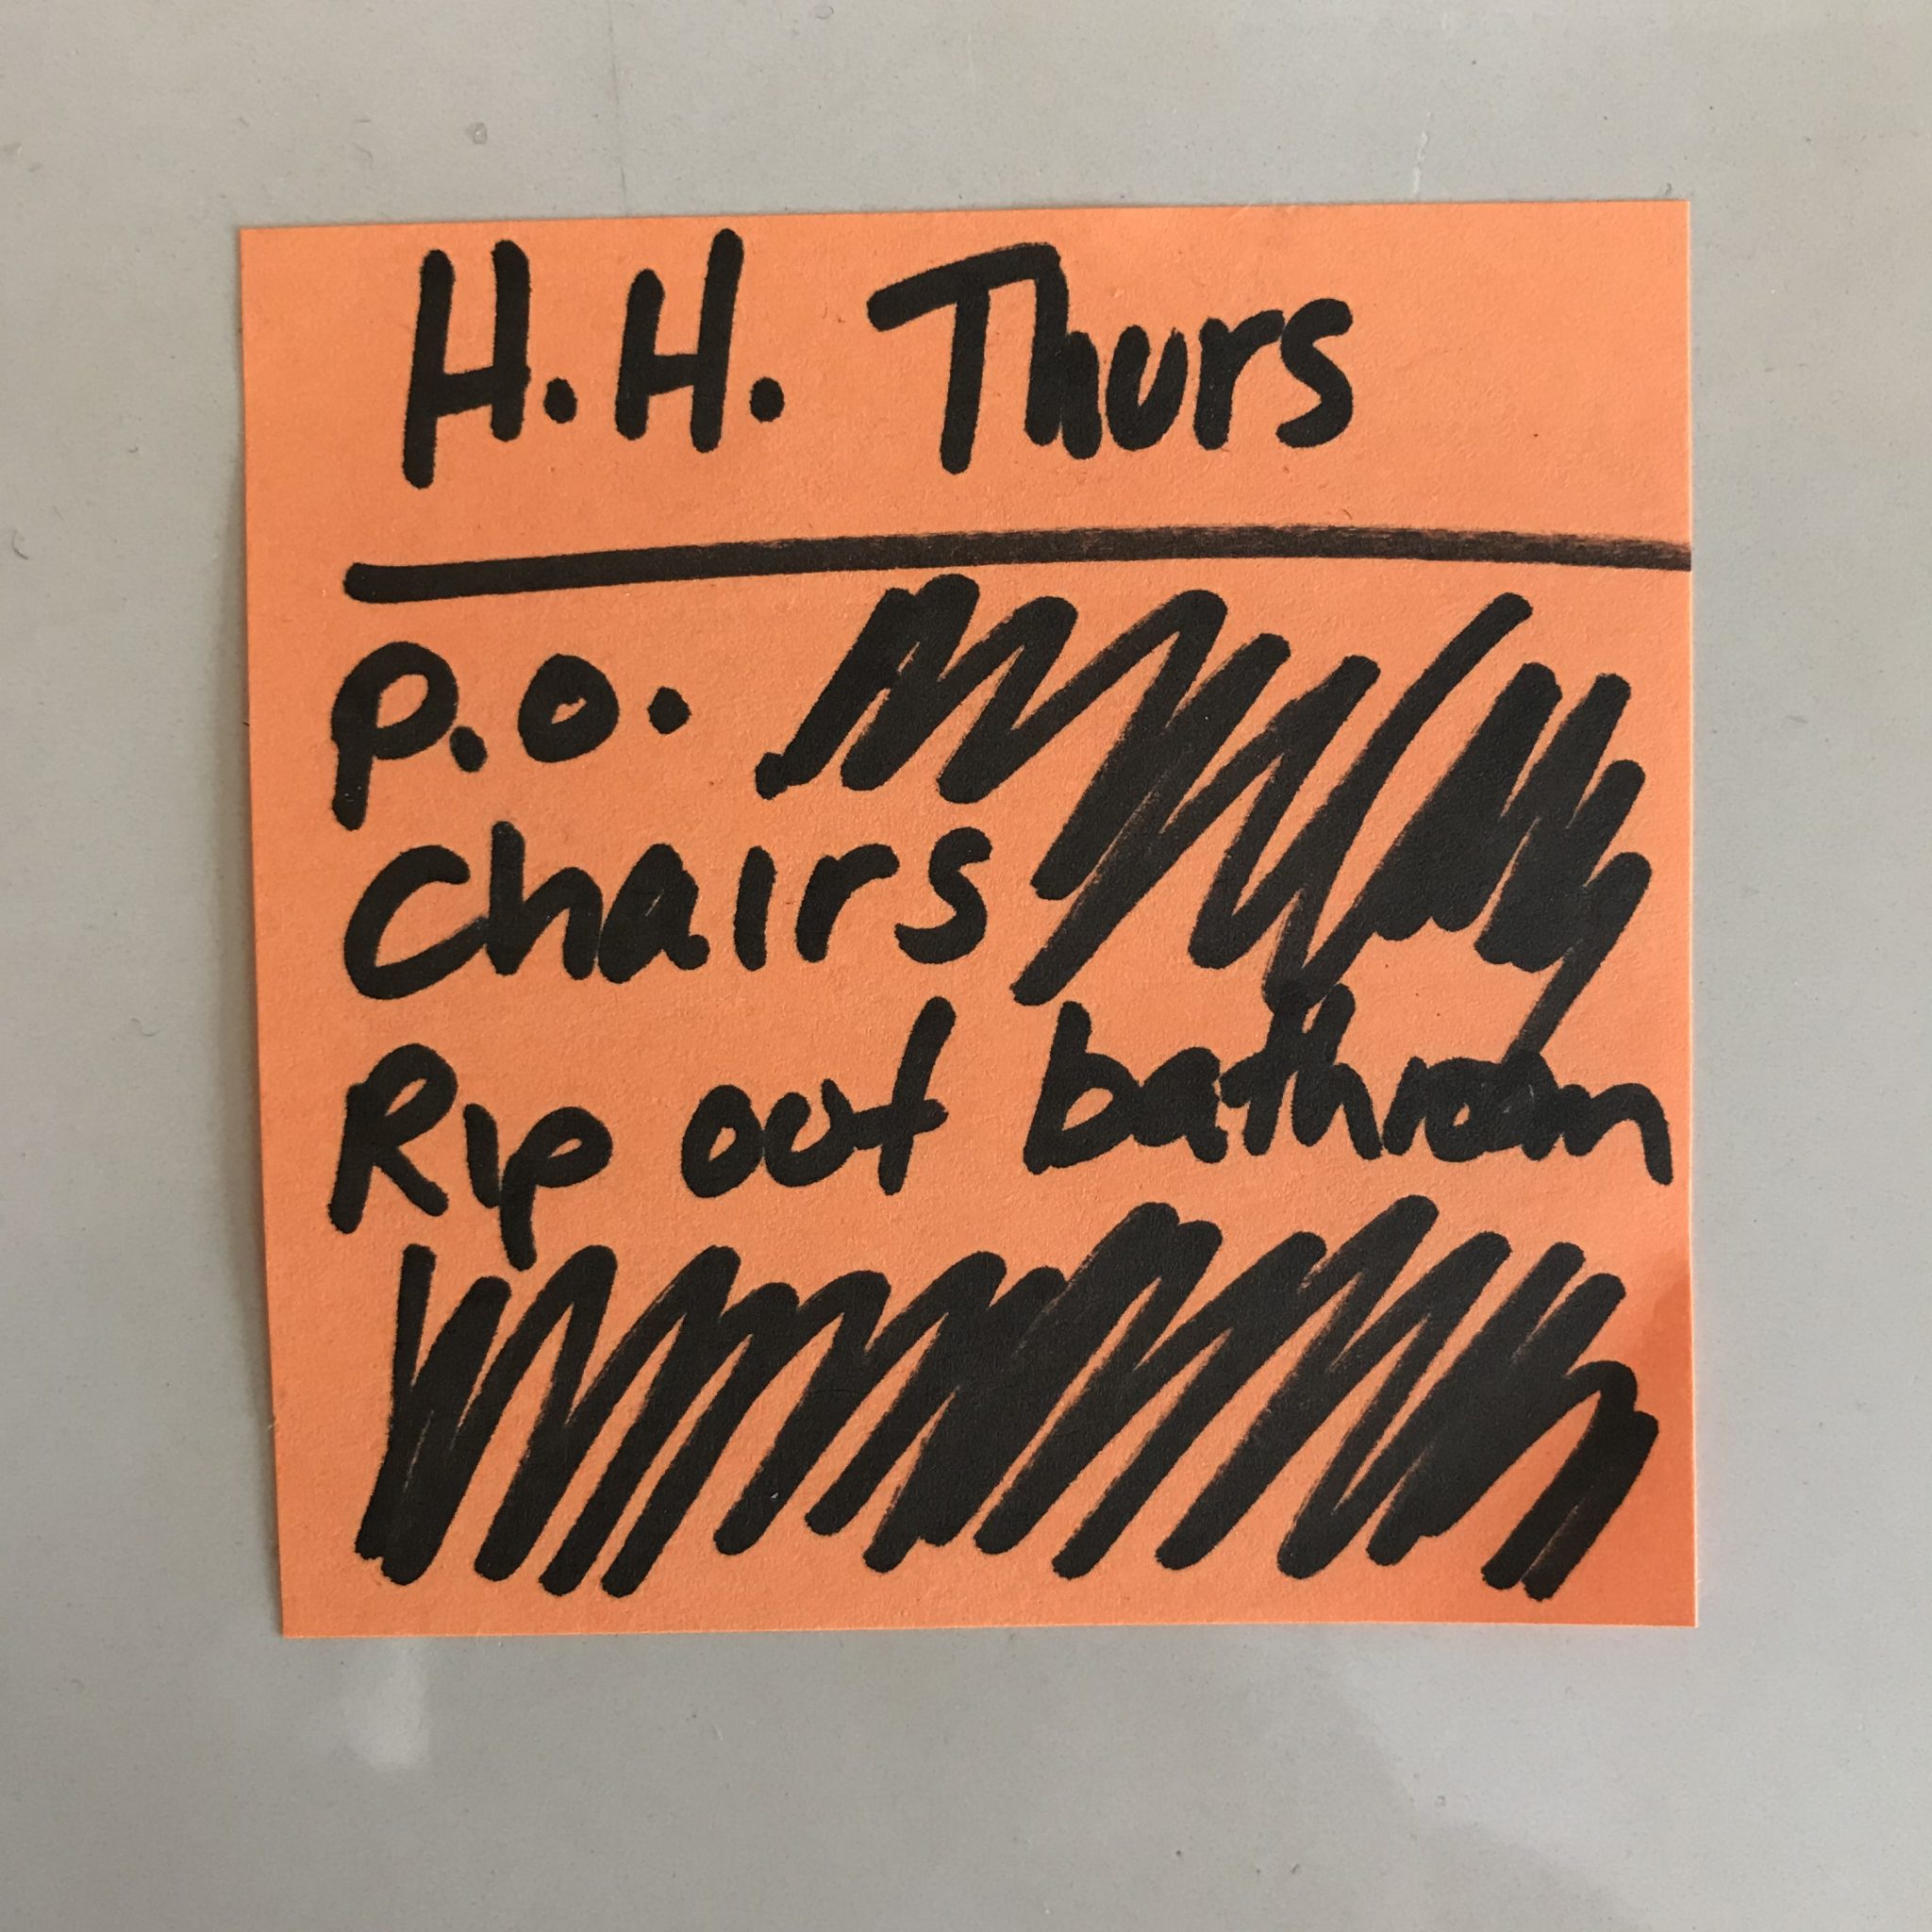 H.H. Thurs
P.O.
Chairs
Rip out bathroom